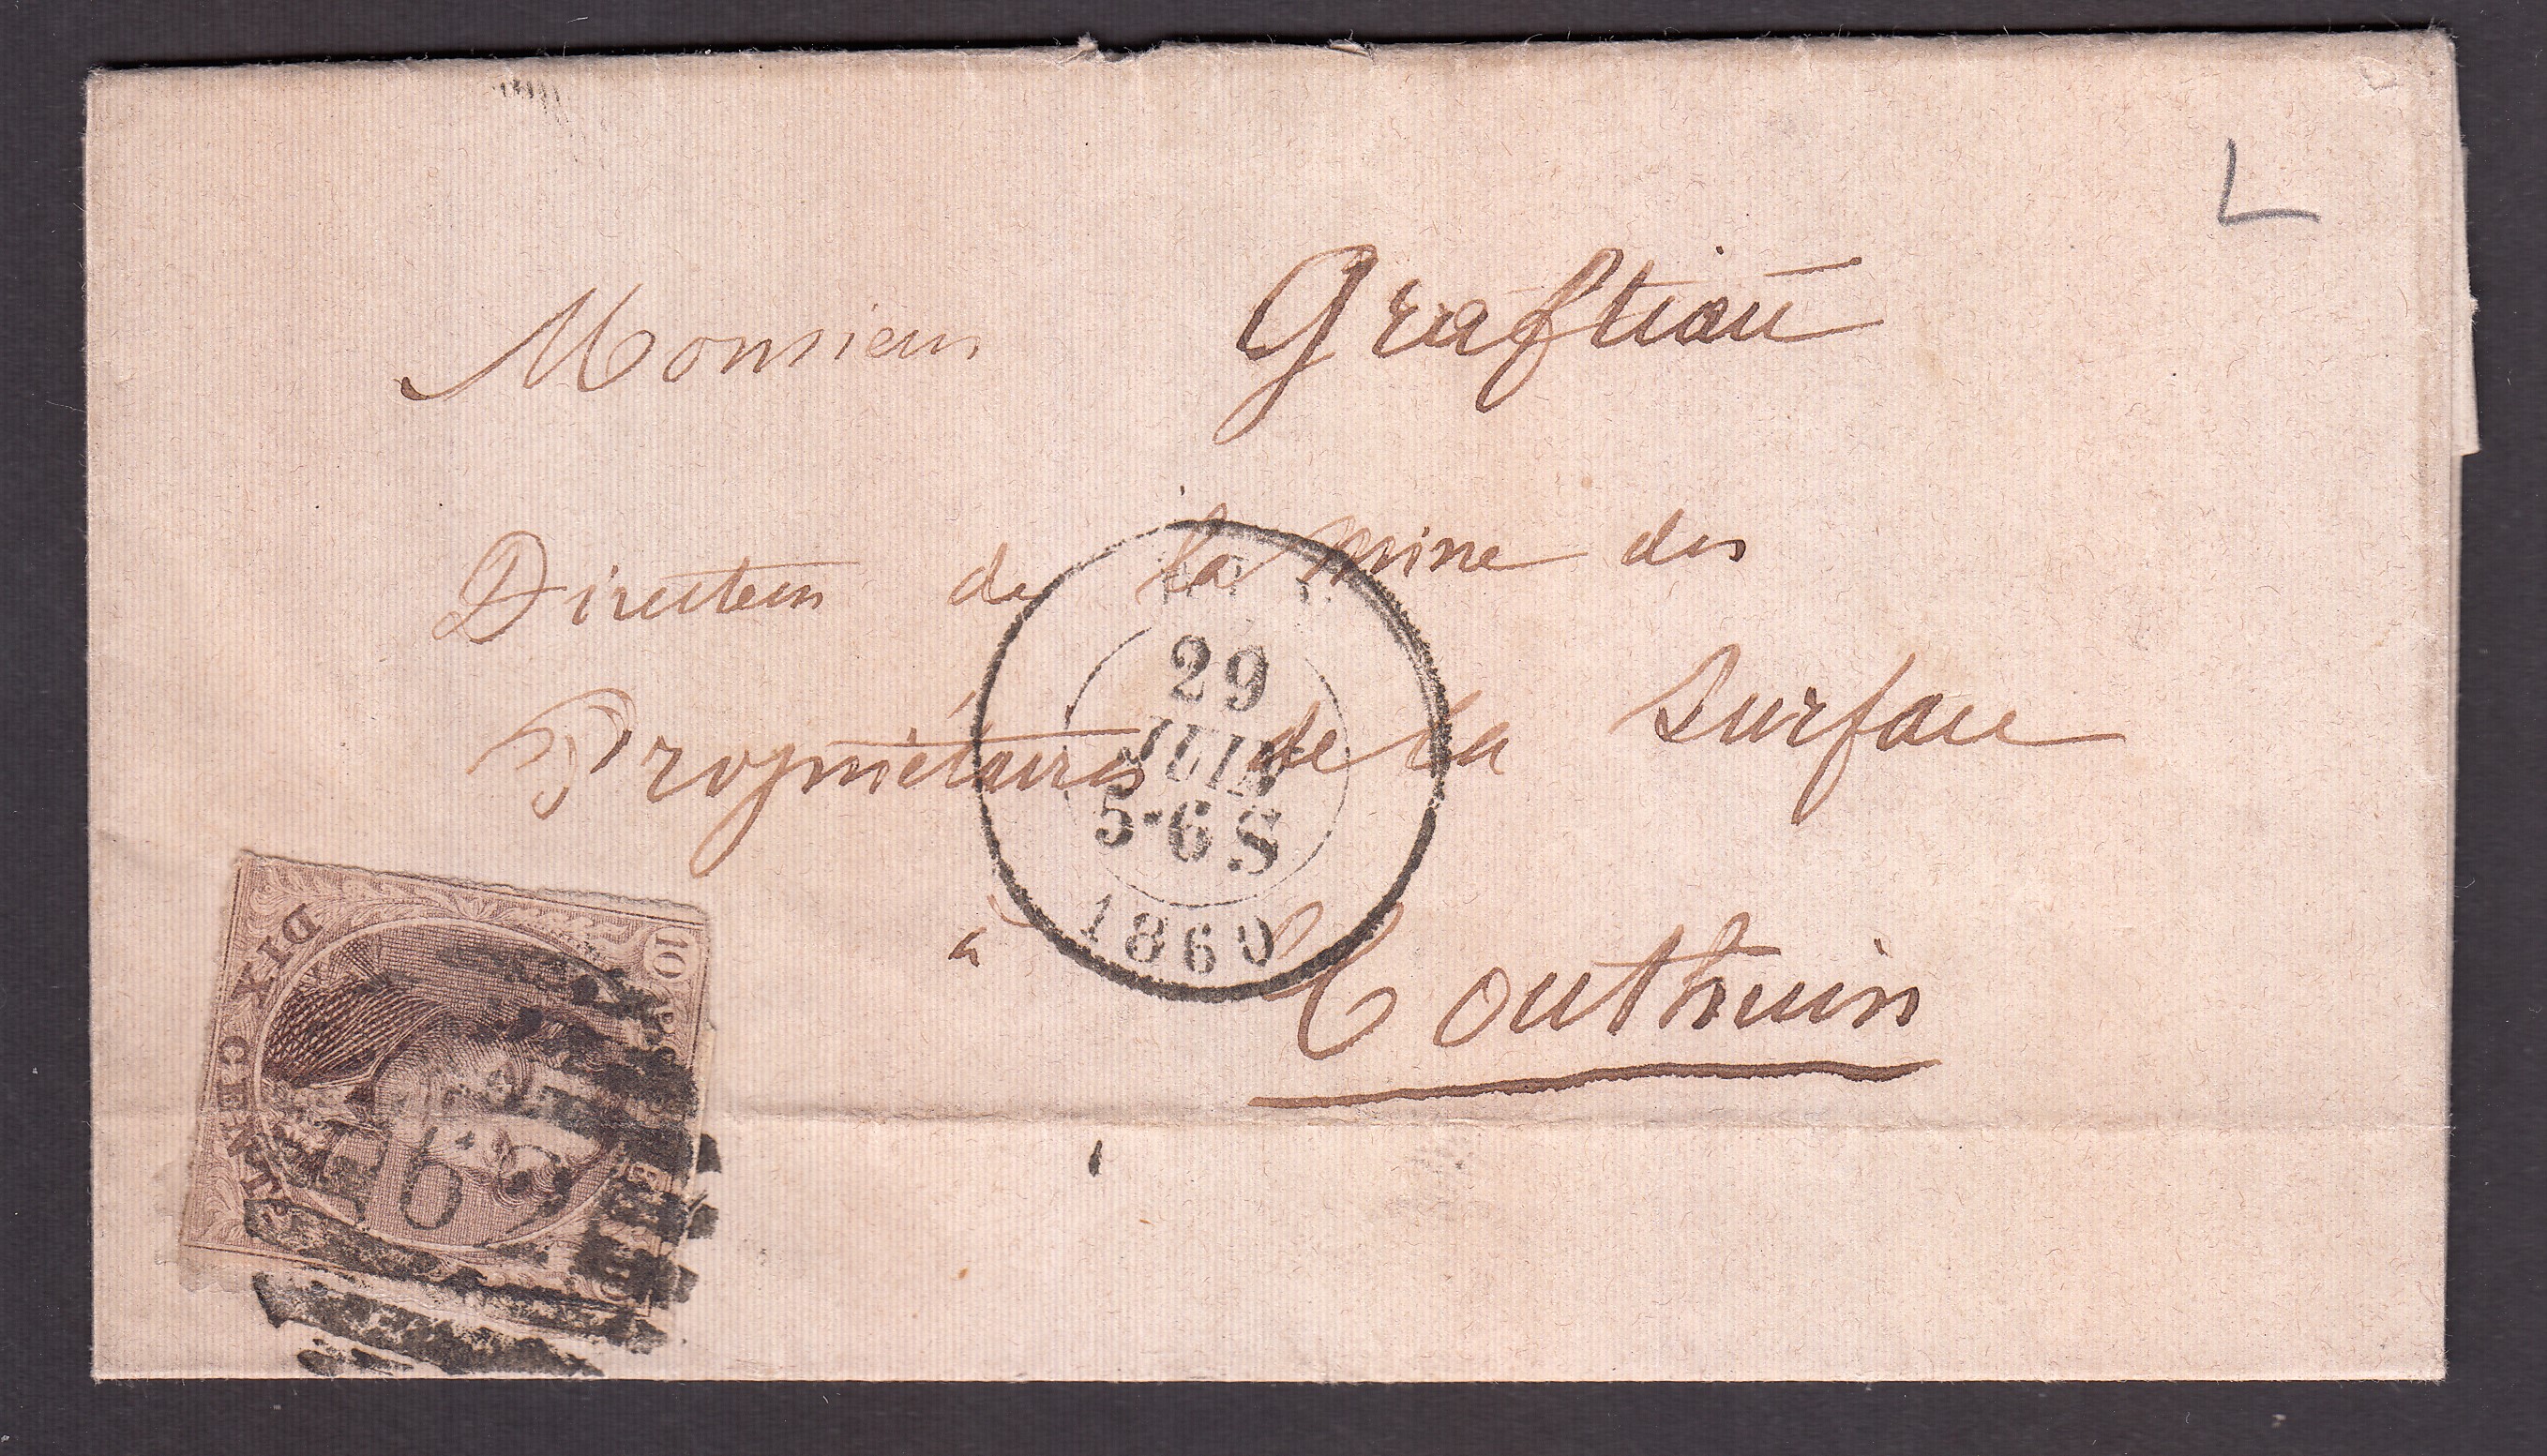 L
Monsieur Graftiau
Directeur de la mine des
Propriétaires de la Surface
à Couthuin
29
JUIN
5-6 S
1860
10
DIX CENTS